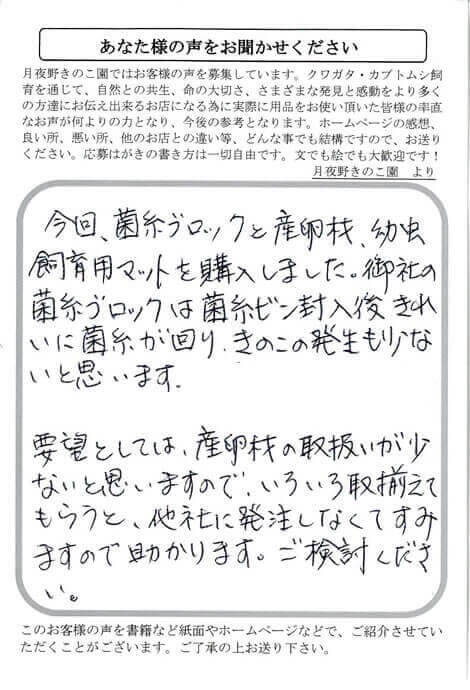 あなた様の声をお聞かせください
月夜野きのこ園ではお客様の声を募集しています。クワガタ・カブトムシ飼
育を通じて、自然との共生、命の大切さ、さまざまな発見と感動をより多く
の方達にお伝え出来るお店になる為に実際に用品をお使い頂いた皆様の率直
なお声が何よりの力となり、今後の参考となります。ホームページの感想、
良い所、悪い所、他のお店との違い等、どんな事でも結構ですので、お送り
ください。応募はがきの書き方は一切自由です。文でも絵でも大歓迎です！
月夜野きのこ園　より
今回、菌糸ブロックと産卵材、幼虫
飼育用マットを購入しました。御社の
菌糸ブロックは菌糸ビン封入後きれ
いに菌糸が回り、きのこの発生も少な
いと思います。
要望としては、産卵材の取扱いが少
ないと思いますので、いろいろ取揃えて
もらうと、他社に発注しなくてすみ
ますので助かります。ご検討くださ
い。
このお客様の声を書籍など紙面やホームページなどで、ご紹介させてい
ただくことがございます。ご了承の上お送り下さい。